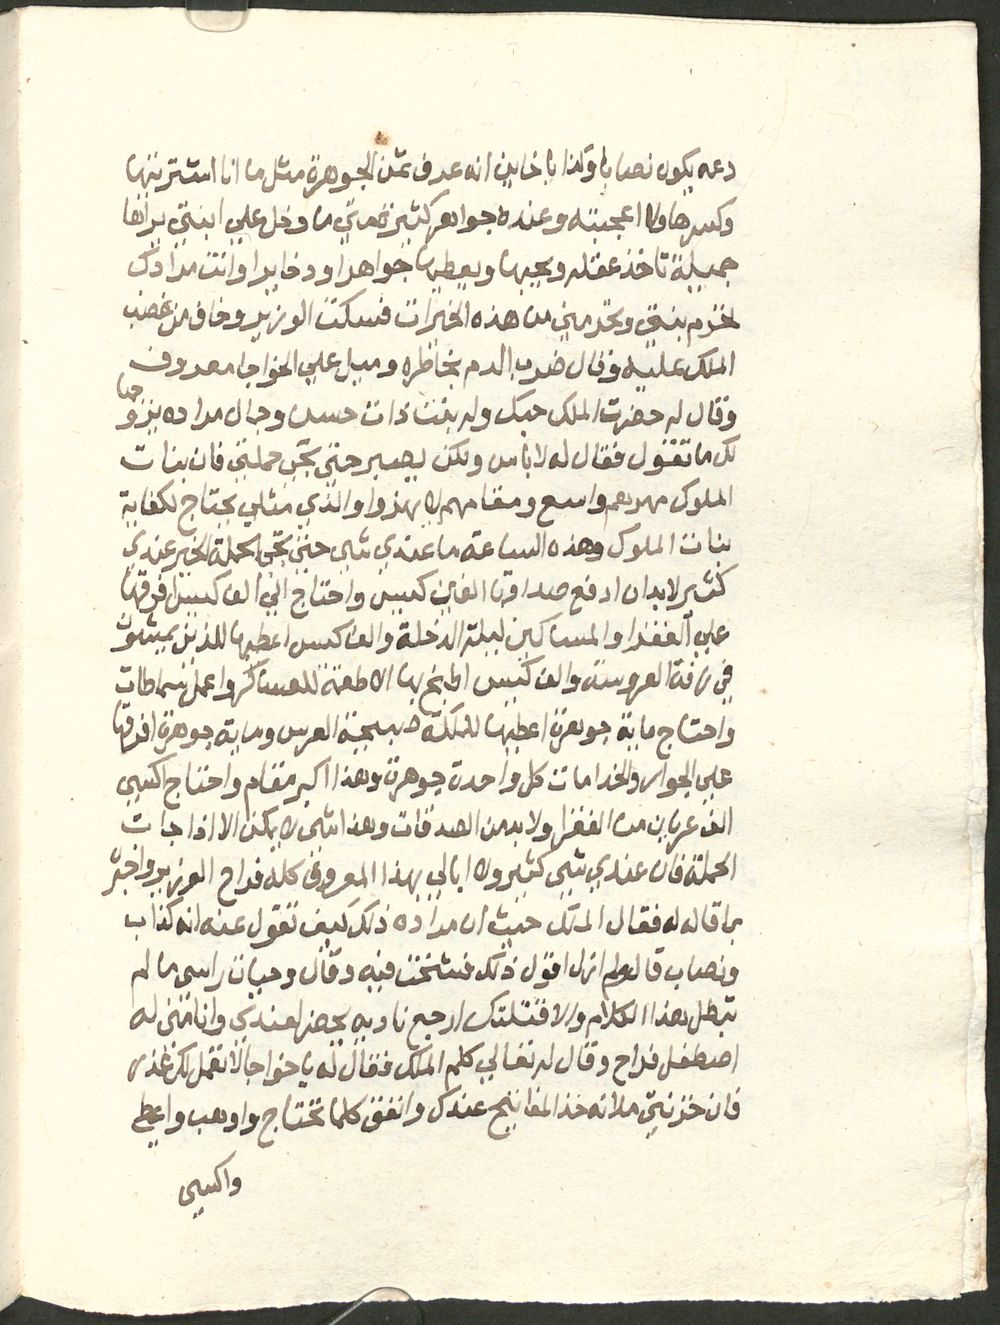 دعه يكون نصاب يا ولد يا خاين انه عرف ثمن الجوهرة مثل ما انا اشتريتها
وكسرها ولا اعجبته وعنده جواهر كثير فمتي ما دخل علي ابنتي يراها
جميلة تاخذ عقله ويحبها ويعطيها جواهرا وذخايرا وانت مرادك
تحرم بنتي وتحرمني من هذه الخيرات فسكت الوزير وخاف من غضب
الملك عليه وقال ضرب الدم بخاطره وميل علي الخواجا معروف
وقال له حضرت الملك حبك وله بنت ذات حسن وجمال مراده يزوجها
لك ما تقول فقال له لا باس ولكن يصبر حتي تجي حملتي فان بنات
الملوك مهرهم واسع ومقامهم لا يهذوا والذي مثلي يحتاج لكفاية
بنات الملوك وهذه الساعة ما عندي شي حتي تجي الحملة الخير عندي
كثير لابد ان ادفع صداقها الفين كيس واحتاج الي الف كيس افرقها
علي الفقرا والمساكين ليلة الدخلة والف كيس اعطيها للذين يمشون
في زفة العروسة والف كيس اطبخ بها الاطعمة للعساكر واعمل سماطات
واحتاج ماية جوهرة اعطيها للملكة صبيحية العرس وماية جوهرة افرقها
علي الجوار والخدامات كل واحدة جوهرة وهذا اكبر مقام واحتاج اكسي
الف عريان من الفقرا ولابد من الصدقات وهذا شي لا يمكن الا اذا جات
الحملة فان عندي شي كثير ولا ابالي بهذا المصروف كله فراح الوزير واخبر
بما قاله له فقال الملك حيث ان مراده ذلك كيف تقول عنه انه كذاب
ونصاب قال ولم ازل اقول ذلك فشخت فيه وقال وحيات راسي ما لم
تبطل هذا الكلام والا قتلتك ارجع ناديه يحضر لعندي وانا اتمني له
اصطفل فراح وقال له تعالي كلم الملك فقال له يا خواجا لا تعمل لك عذر
فان خزنتي ملانه خذ المفاتيح عندك وانفق كلما تحتاج واوهب واعطي
واكسي